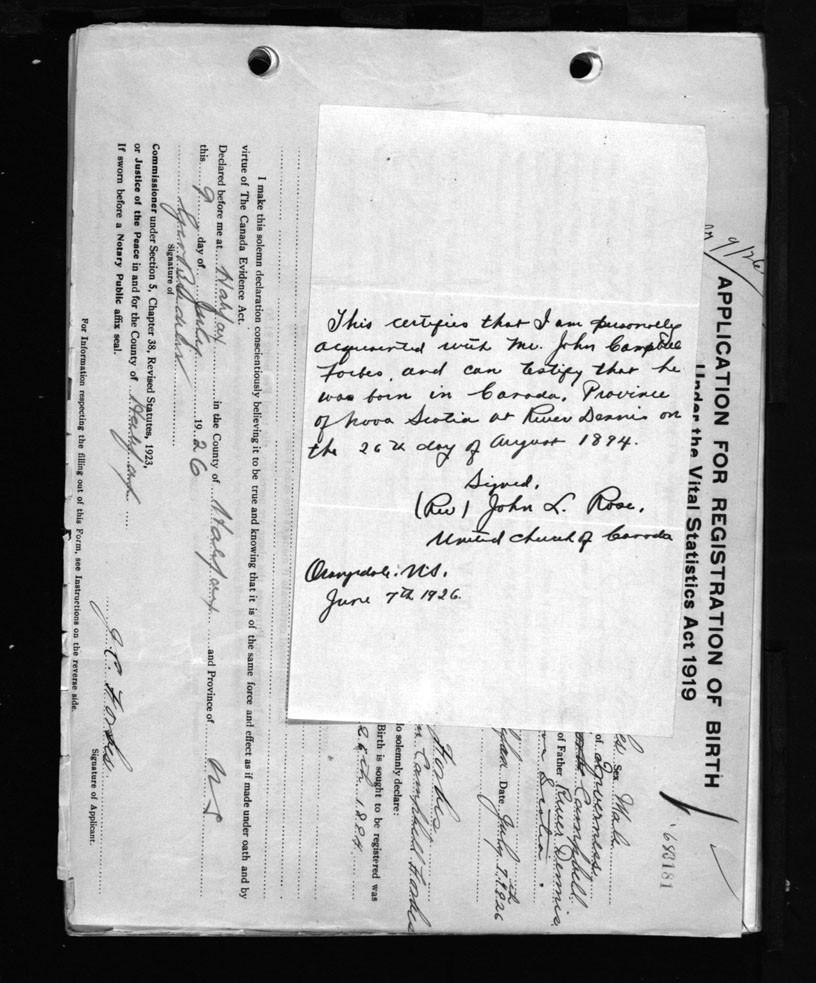 This certifies that I am personally
acquainted with Mr. John Campbell
Forbes, and can testify that he
was born in Canada, Province
of Nova Scotia at River Dennis on
the 26th day of August 1894.
Signed,
(Rev) John L. Rose,
United Church of Canada
Orangedale. N.S.
June 7th 1926.
9/26
APPLICATION FOR REGISTRATION OF BIRTH
Under the Vital Statistics Act 1919
683181
Sex Male
of Inverness
Campbell
of Father River Dennis
Scotia
Date July 7th 1926
Forbes
Campbell Forbes
do solemnly declare:
Birth is sought to be registered was
26th 1894
I make this solemn declaration conscientiously believing it to be true and knowing that it is of the same force and effect as if made under oath and by
virtue of The Canada Evidence Act.
Declared before me at Halifax in the County of Halifax and Province of N S
this 9 day of July 1926
Signature of
Commissioner under Section 5, Chapter 38, Revised Statutes, 1923,
or Justice of the Peace in and for the County of Halifax
If sworn before a Notary Public affix seal.
J. C. Forbes
Signature of Applicant.
For Information respecting the filling out of this Form, see Instructions on the reverse side.